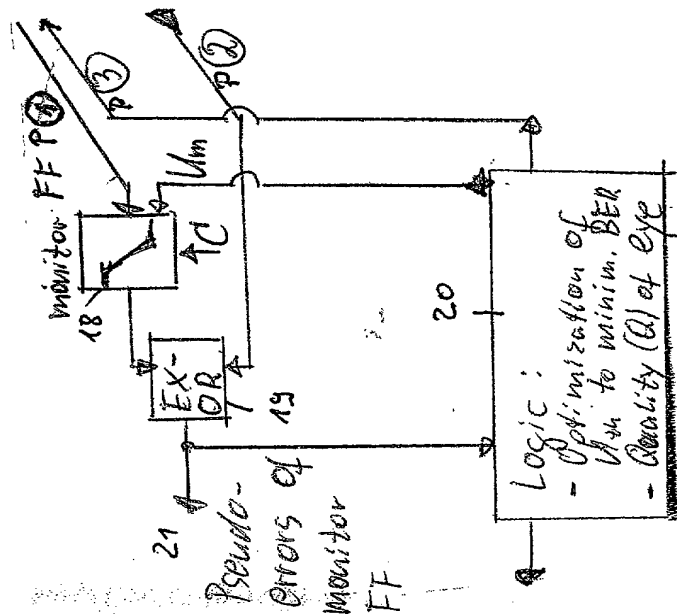 monitor FF P①
P③
P②
Um
C
18
EX-
OR
19
21
Pseudo-
errors of
monitor
FF
20
Logic :
- Optimization of
Um to minim. BER
- Quality (Q) of eye